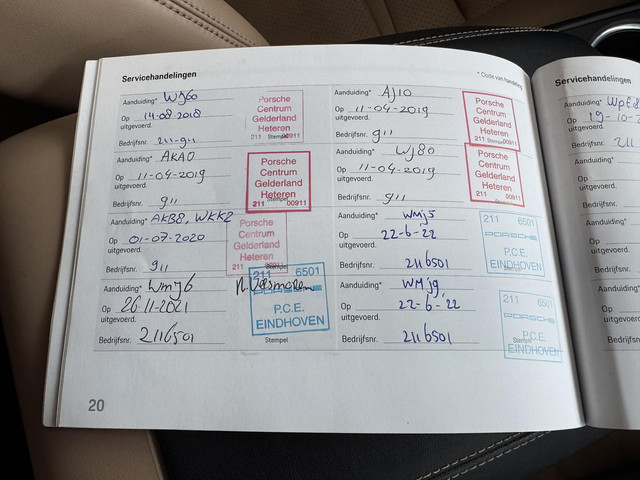 Servicehandelingen
* Code van handeling
Aanduiding* WJ60
Op 14-08 2018
uitgevoerd.
Bedrijfsnr. 211-911
Porsche
Centrum
Gelderland
Heteren
211 Stempel 00911
Aanduiding* AJ10
Op 11-04-2019
uitgevoerd.
Bedrijfsnr. 911
Porsche
Centrum
Gelderland
Heteren
211 Stempel 00911
Aanduiding* AKA0
Op 11-04-2019
uitgevoerd.
Bedrijfsnr. 911
Porsche
Centrum
Gelderland
Heteren
211 Stempel 00911
Aanduiding* WJ80
Op 11-04-2019
uitgevoerd.
Bedrijfsnr. 911
Porsche
Centrum
Gelderland
Heteren
211 Stempel 00911
Aanduiding* AKB8, WKK2
Op 01-07-2020
uitgevoerd.
Bedrijfsnr. 911
Porsche
Centrum
Gelderland
Heteren
211 Stempel
Aanduiding* WMJ5
Op 22-6-22
uitgevoerd.
Bedrijfsnr. 2116501
211 6501
PORSCHE
P.C.E.
EINDHOVEN
Aanduiding* WMJ6
Op 26 11-2021
uitgevoerd.
Bedrijfsnr. 2116501
211 6501
PORSCHE
P.C.E.
EINDHOVEN
Stempel
Aanduiding* WMJ9
Op 22-6-'22
uitgevoerd.
Bedrijfsnr. 2116501
211 6501
PORSCHE
P.C.E.
Stempel
EINDHOVEN
20
Servicehandelingen
Aanduiding*
Op 19-10-2
uitgevoerd.
Bedrijfsnr.
Aanduiding*
Op
uitgevoerd.
Bedrijfsnr.
Aanduiding*
Op
uitgevoerd.
Bedrijfsnr.
Aanduiding*
Op
uitgevoerd.
Bedrijfsnr.